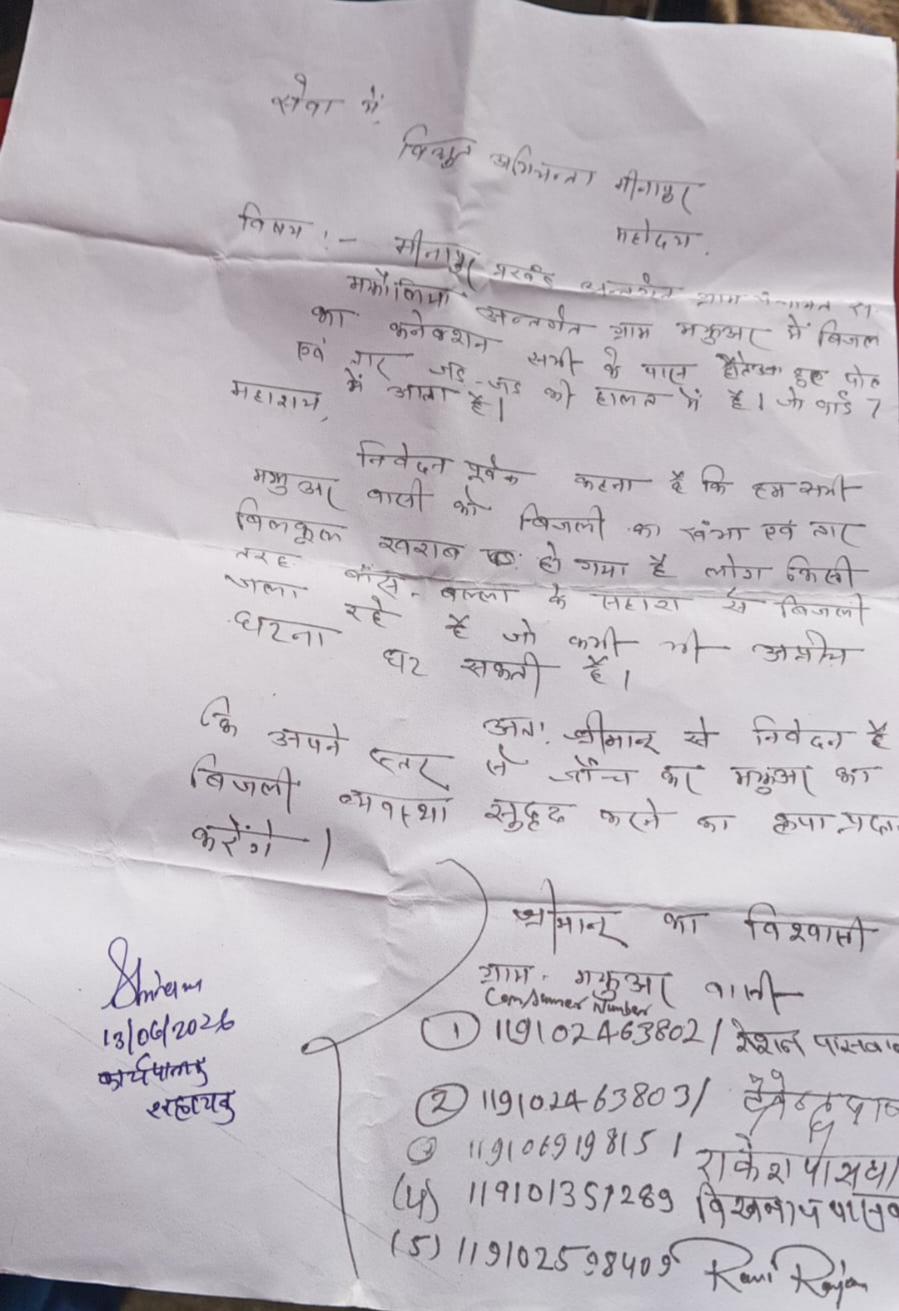 सेवा में,
विद्युत अभियन्ता मीनापुर
महोदय.
विषय :- मीनापुर प्रखंड अन्तर्गत ग्राम पंचायत
मझौलिया अन्तर्गत ग्राम मझुआर में बिजल
का कनेक्शन सभी के पास हुए पोल
एवं तार जड़-जड़ की हालत में है। जो वार्ड 7
में आता है।
महाशय,
निवेदन पूर्वक कहना है कि हम सभी
मझुआर वासी को बिजली का खंभा एवं तार
बिलकूल खराब हो गया है लोग किसी
तरह बाँस-बल्ला के सहारा से बिजली
जला रहे है जो कभी भी अप्रीय
घटना घट सकती है।
अतः श्रीमान् से निवेदन है
कि अपने स्तर से जाँच कर मझुआर का
बिजली व्यवस्था सुदृढ करने का कृपा प्रदा
करेंगे।
श्रीमान् का विश्वासी
ग्राम- मझुआर वासी
Consumer Number
① 119102463802/ रौशन पासवान
② 119102463803/
③ 119106919815 । राकेश पासवा
(4) 119101351289 विश्वनाथ पासव
(5) 119102598409 Ravi Rajan
Shivam
13/06/2026
कार्यपालक
सहायक